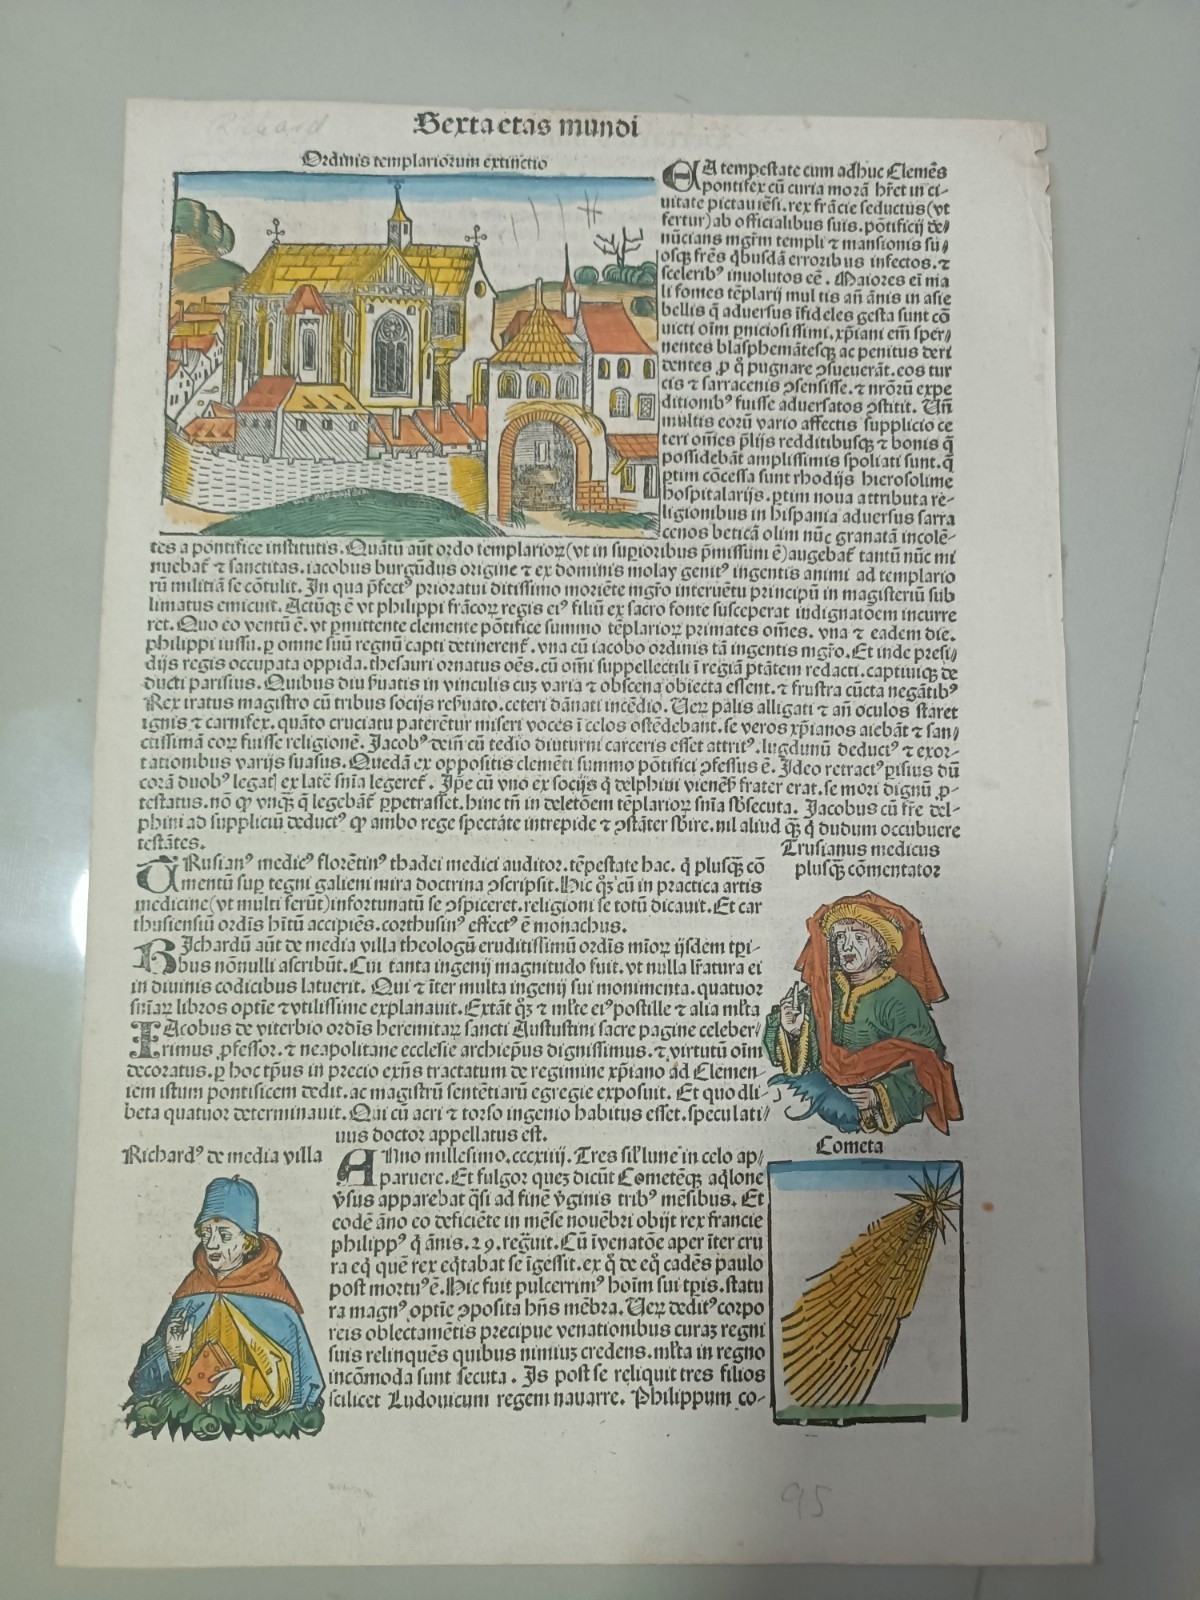 Richard
Sexta etas mundi
Ordinis templariorum extinctio
EA tempestate cum adhuc Clemẽs
pontifex cũ curia morã hr̃et in ci-
uitate pictauiẽsi. rex frãcie seductus (vt
fertur) ab officialibus suis. põtificij de/
nũcians mgr̃m templi ⁊ mansionis su/
osq; frẽs q̇busdã erroribus infectos. ⁊
sceleribꝰ inuolutos eẽ. Maiores eĩ ma
li fomes tẽplarij multis añ ãnis in asie
bellis q̃ aduersus ĩfideles gesta sunt cõ
uicti oĩm ꝑniciosissimi. xp̃iani em̃ sper/
nentes blasphemãtesq; ac penitus deri
dentes ꝓ q̇ pugnare ↄsueuerãt. eos tur
cis ⁊ sarracenis ↄsensisse. ⁊ nr̃orũ expe
ditionibꝰ fuisse aduersatos ↄstitit. Uñ
multis eorũ vario affectis supplicio ce
teri om̃es p̃lijs redditibusq; ⁊ bonis q̃
possidebãt amplissimis spoliati sunt. q̃
ꝑtim cõcessa sunt rhodijs hierosolime
hospitalarijs. ꝑtim noua attributa re-
ligionibus in hispania aduersus sarra
cenos beticã olim nũc granatã incolẽ-
tes a pontifice institutis. Quãtũ aũt ordo templarioꝝ (vt in supioribus p̃missum ẽ) augebat̃ tantũ nũc mi
nuebat̃ ⁊ sanctitas. iacobus burgũdus origine ⁊ ex dominis molay genitꝰ ingentis animi ad templario
rũ militiã se cõtulit. In qua p̃fectꝰ prioratui ditissimo moriẽte mgr̃o interuẽtu principũ in magisteriũ sub
limatus emicuit. Actũq; ẽ vt philippi frãcoꝝ regis eiꝰ filiũ ex sacro fonte susceperat indignatõem incurre
ret. Quo eo ventũ ẽ. vt ꝑmittente clemente põtifice summo tẽplarioꝝ primates om̃es. vna ⁊ eadem die.
philippi iussu. ꝑ omne suũ regnũ capti detinerent̃. vna cũ iacobo ordinis tã ingentis mgr̃o. Et inde presi/
dijs regis occupata oppida. thesauri ornatus oẽs. cũ om̃i suppellectili ĩ regiã ptãtem redacti. captiuiq; de
ducti parisius. Quibus diu ẜuatis in vinculis cuz varia ⁊ obscena obiecta essent. ⁊ frustra cũcta negãtibꝰ
Rex iratus magistro cũ tribus socijs reẜuato. ceteri dãnati incẽdio. Ueꝝ palis alligati ⁊ añ oculos staret
ignis ⁊ carnifex. quãto cruciatu paterẽtur miseri voces ĩ celos ostẽdebant. se veros xp̃ianos aiebãt ⁊ san-
ctissimã coꝝ fuisse religionẽ. Jacobꝰ deĩn cũ tedio diuturni carceris esset attritꝰ. lugdunũ deductꝰ ⁊ exor-
tationibus varijs suasus. Quedã ex oppositis clemẽti summo põtifici ↄfessus ẽ. Ideo retractꝰ ꝑisius dũ
corã duobꝰ legat; ex latẽ sñia legeret̃. Ip̃e cũ vno ex socijs q̇ delphini vienẽẜ frater erat. se mori dignũ ꝓ-
testatus. nõ ꝙ vnq̃; q̃ legebãt̃ ꝑpetrasset. hinc tñ in deletõem tẽplarioꝝ sñia sb̃secuta. Jacobus cũ fr̃e del-
phini ad suppliciũ deductꝰ ꝙ ambo rege spectãte intrepide ⁊ ↄstãter sb̃ire. nil aliud q̃; q̇ dudum occubuere
testãtes.
TRusianꝰ medicꝰ florẽtinꝰ thadei medici auditor. tẽpestate hac. q̇ plusq̃; cõ
mentũ suꝑ tegni galieni mira doctrina ↄscripsit. Hic q̃; cũ in practica artis
medicine (vt multi ferũt) infortunatũ se ↄspiceret. religioni se totũ dicauit. Et car
thusiensiũ ordĩs hĩtũ accipiẽs. corthusinꝰ effectꝰ ẽ monachus.
Trusianus medicus
plusq̃; cõmentator
RIchardũ aũt de media villa theologũ eruditissimũ ordĩs mĩoꝝ ijsdem tp̃i-
bus nõnulli ascribũt. Cui tanta ingenij magnitudo fuit. vt nulla lr̃atura ei
in diuinis codicibus latuerit. Qui ⁊ ĩter multa ingenij sui monimenta. quatuor
sniãꝝ libros optĩe ⁊ vtilissime explanauit. Extãt q̃; ⁊ ml̃te eiꝰ postille ⁊ alia ml̃ta
IAcobus de viterbio ordĩs heremitaꝝ sancti Austustini sacre pagine celeber/
rimus ꝓfessor. ⁊ neapolitane ecclesie archiep̃us dignissimus. ⁊ virtutũ oĩm
decoratus. ꝑ hoc tp̃us in precio exñs tractatum de regimine xp̃iano ad Clemen-
tem istum pontificem dedit. ac magistrũ sentẽtiarũ egregie exposuit. Et quodli-
beta quatuor determinauit. Qui cũ acri ⁊ torso ingenio habitus esset. speculati/
uus doctor appellatus est.
Richardꝰ de media villa
ANno millesimo. cccxiiij. Tres sil̃ lune in celo ap/
paruere. Et fulgor quez dicũt Cometẽq; aq̇lone
ṽsus apparebat q̃si ad finẽ ṽginis tribꝰ mẽsibus. Et
codẽ ãno eo deficiẽte in mẽse nouẽbri obijt rex francie
philippꝰ q̇ ãnis. 29. regũit. Cũ ĩvenatõe aper ĩter cru
ra eq̇ quẽ rex eq̇tabat se ĩgessit. ex q̇ de eq̇ cadẽs paulo
post mortuꝰ ẽ. Hic fuit pulcerrimꝰ hoĩm sui tp̃is. statu
ra magnꝰ optĩe ↄposita hñs mẽbra. Ueꝝ deditꝰ corpo
reis oblectamẽtis precipue venationibus curaz regni
suis relinquẽs quibus nimiuz credens. ml̃ta in regno
incõmoda sunt secuta. Is post se reliquit tres filios
scilicet Ludouicum regem nauarre. Philippum co-
Cometa
95